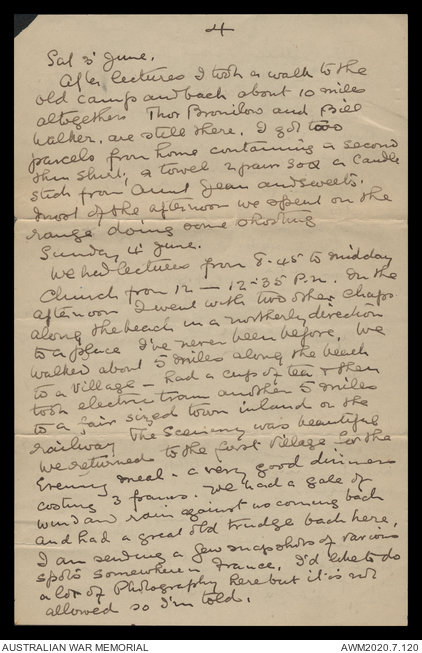 4
Sat 3 June.
After lectures I took a walk to the
old camp and back about 10 miles
altogether. Thos and Bill
Walker, are still there. I got two
parcels from home containing a second
thin shirt, a towel 2 pair sox a candle
stick from Aunt Jean and sweets.
most of the afternoon we spent on the
range doing some shooting
Sunday 4 June.
We had lectures from 8.45 to midday
Church from 12 — 12.35 P.m. In the
afternoon I went with two other chaps
along the beach in a northerly direction
to a place I've never been before. We
walked about 5 miles along the beach
to a village – had a cup of tea & then
took electric tram another 5 miles
to a fair sized town inland on the
railway The scenery was beautiful
We returned to the first village for the
Evening meal - a very good dinner
costing 3 francs. We had a gale of
wind and rain against us coming back
and had a great old trudge back here.
I am sending a few snapshots of various
spots somewhere in France. I'd like to do
a lot of Photography here but it is not
allowed so I'm told.
AUSTRALIAN WAR MEMORIAL
AWM2020.7.120